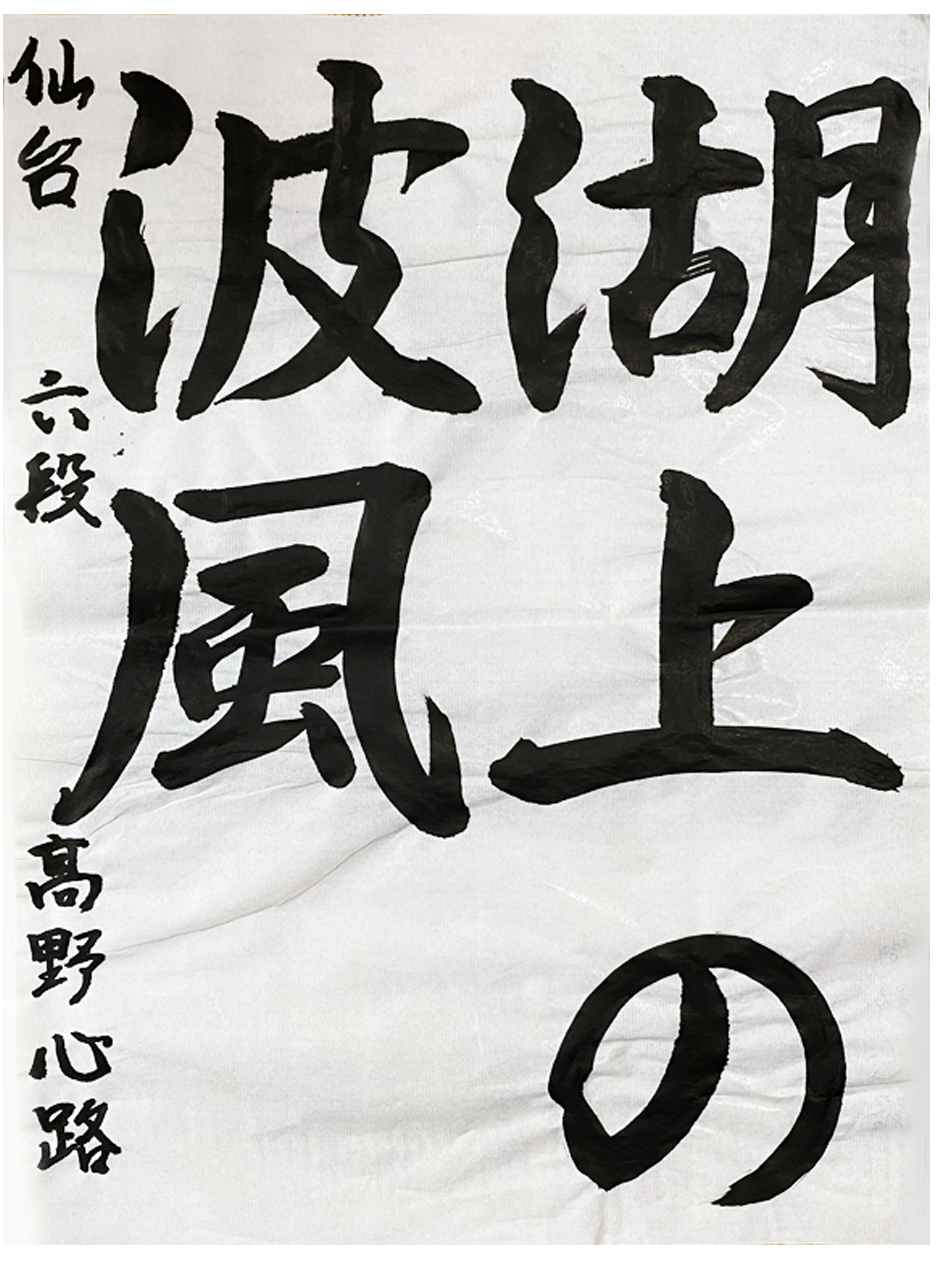 湖上の
波風
仙台 六段 高野心路